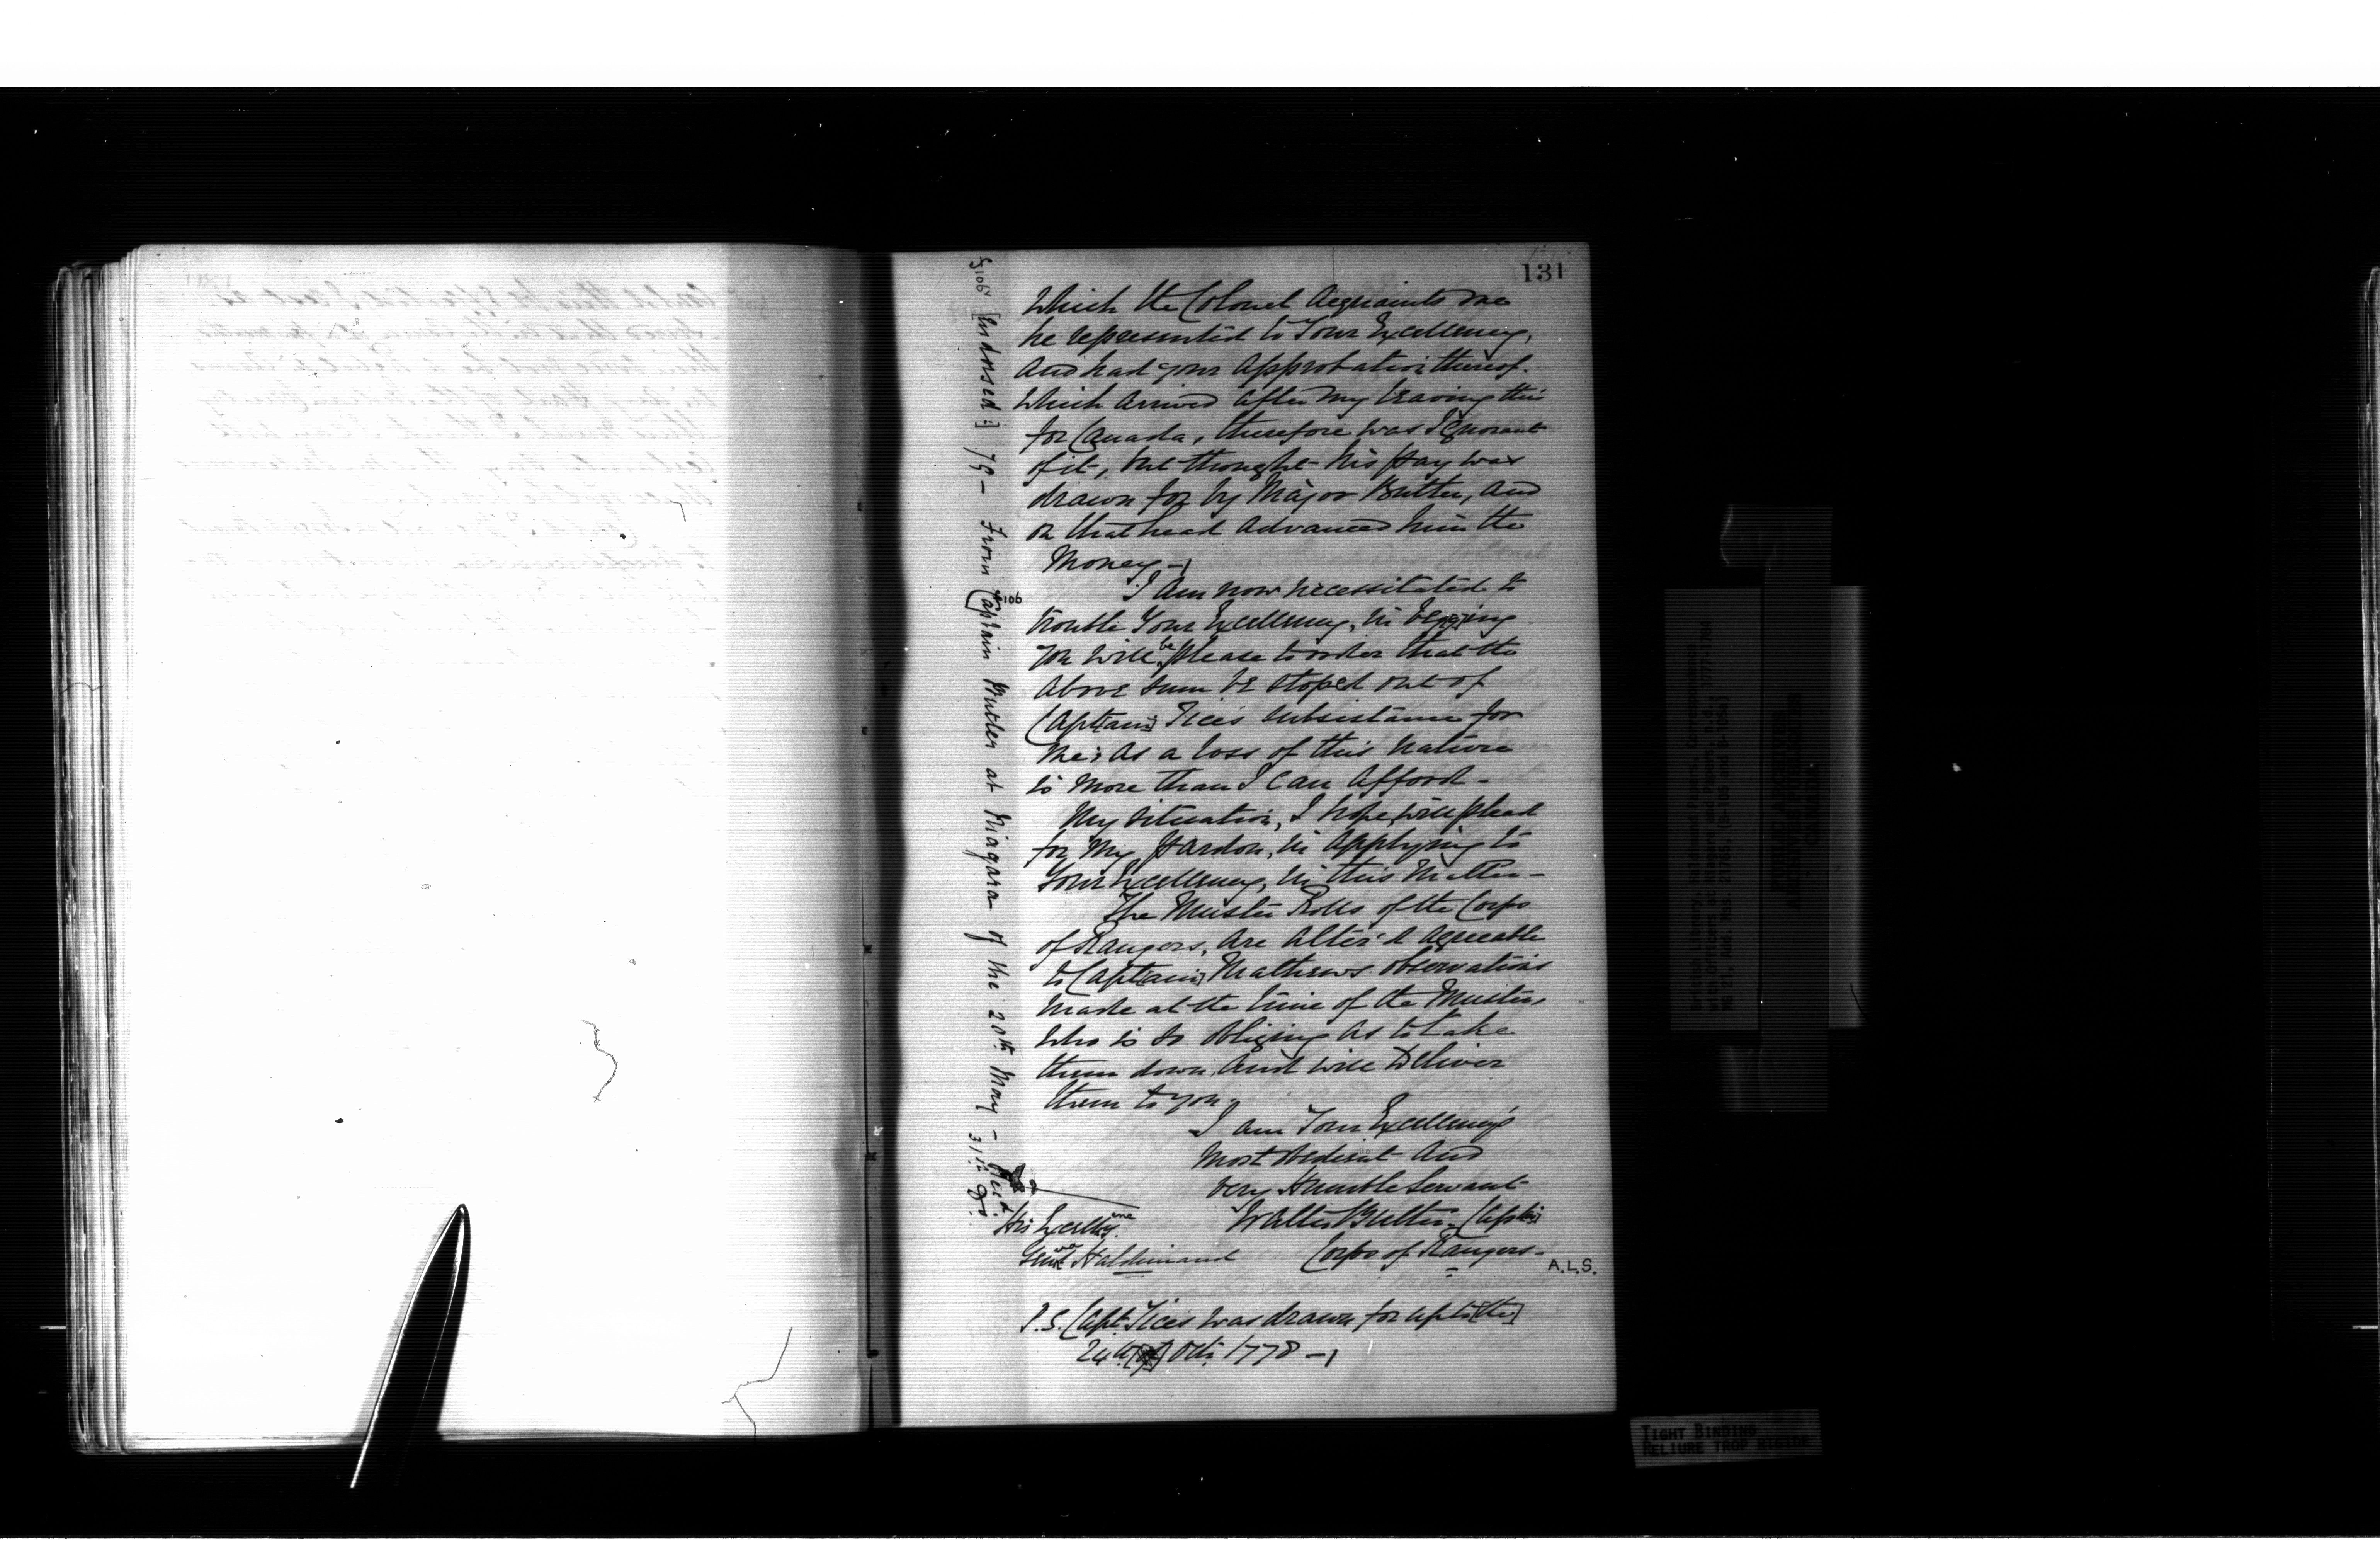 131
Which the Colonel Acquaints me
he represented to Your Excellency,
And had your Approbation thereof.
Which Arrived After My leaving this
for Canada, therefore was Ignorant
of it, but thought his pay was
drawn for by Major Butler, And
on that head Advanced him the
Money —
I Am now necessitated to
trouble Your Excellency, in begging
You will be please to order that the
Above sum be stoped out of
Capt[ain] Tice's subsistance for
Me; As a loss of this nature
is More than I can Afford —
My situation, I hope, will plead
for My pardon, in Applying to
Your Excellency, in this Matter —
The Muster Rolls of the Corps
of Rangers, Are Alter'd Agreeable
to Capt[ain] Mathews observations
Made at the time of the Musters
Who is so obliging As to take
them down, And will Deliver
them to you.
I am Your Excellency's
Most Obedient And
Very Humble Servant
Walter Butler Capt[ain]
Corps of Rangers —
His Excellency
Haldimand
A.L.S.
P.S. Capt. Tices was drawn for up to [the]
24th [of] Octr. 1778 —
[Indorsed:] 79 — From Captain Butler at Niagara of the 20th May — Recd. 31st Do.
106
British Library, Haldimand Papers, Correspondence
with Officers at Niagara and Papers, n.d., 1777-1784
MG 21, Add. Mss. 21765, (B-105 and B-105a)
PUBLIC ARCHIVES
ARCHIVES PUBLIQUES
CANADA
TIGHT BINDING
RELIURE TROP RIGIDE